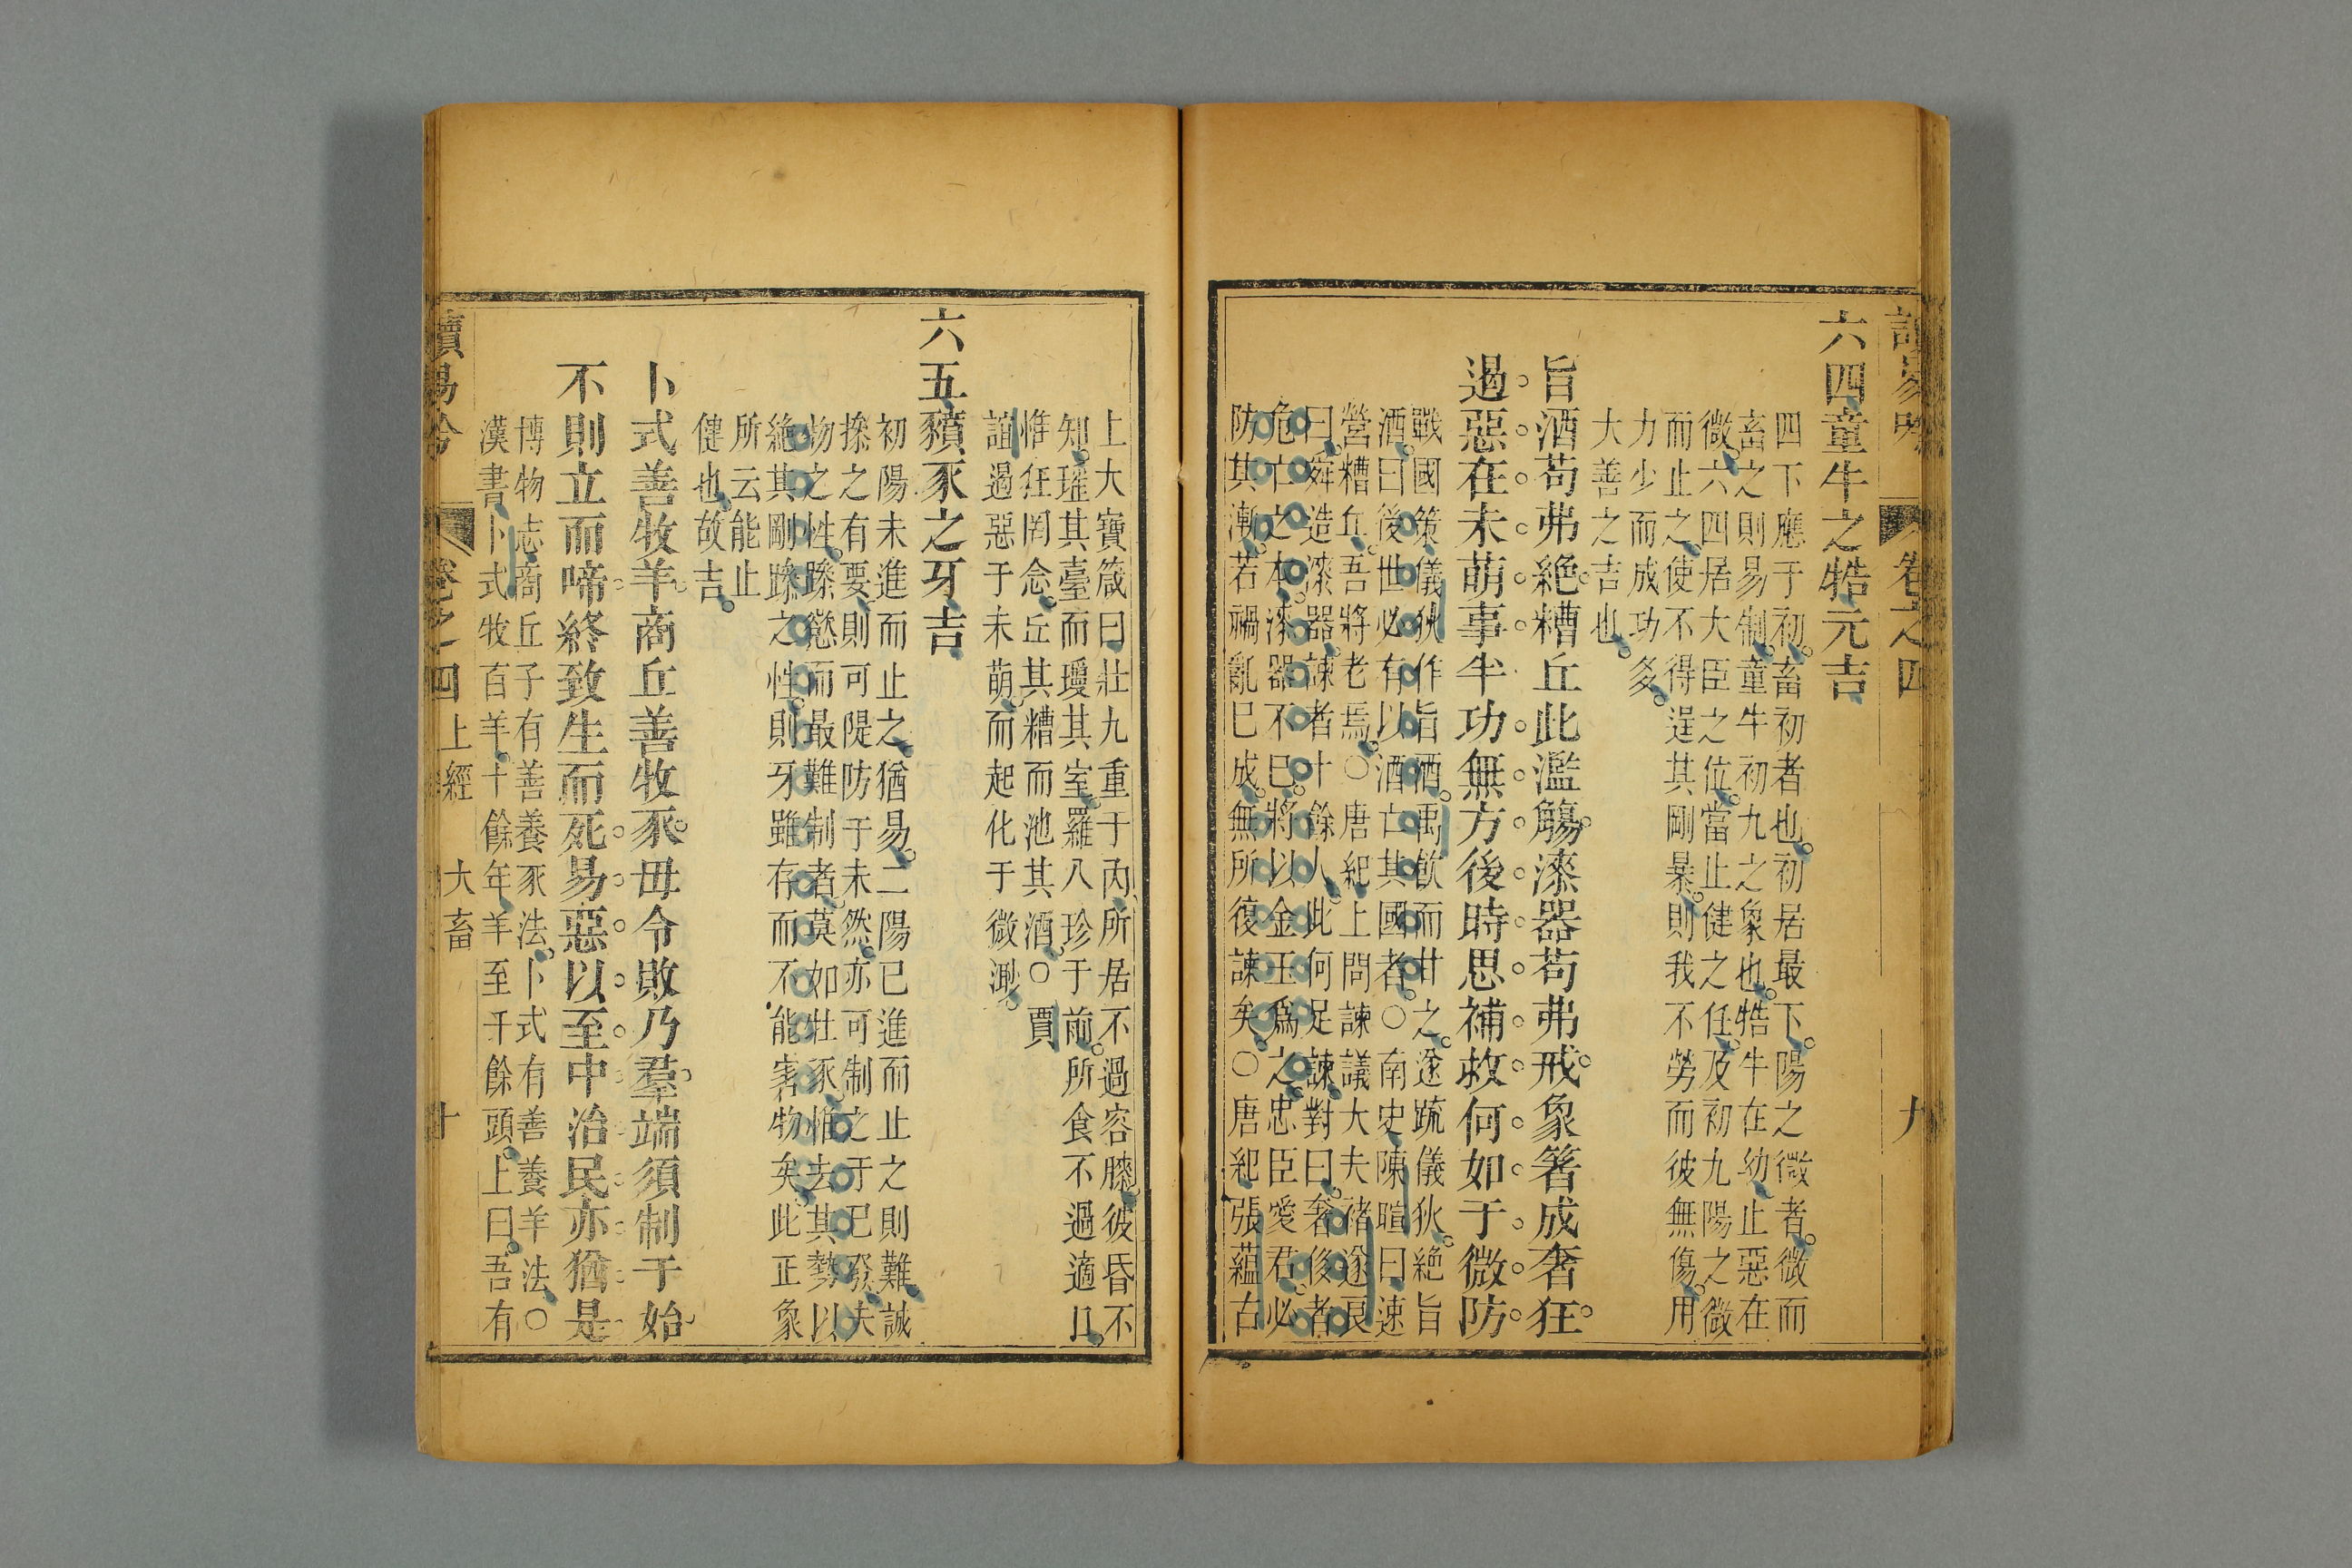 卷之四
九
六四童牛之牿元吉
四下應于初初畜初者也初居最下陽之微者微而
畜之則易制童牛初九之象也牿牛在幼止惡在
微六四居大臣之位當止健之任及初九陽之微
而止之使不得逞其剛暴則我不勞而彼無傷用
力少而成功多
大善之吉也
旨酒苟弗絕糟丘此濫觴漆器苟弗戒象箸成奢狂
過惡在未萌事半功無方後時思補救何如于微防
戰國策儀狄作旨酒禹飲而甘之遂疏儀狄絕旨
酒曰後世必有以酒亡其國者○南史陳暄曰速
營糟丘吾將老焉○唐紀上問諫議大夫褚遂良
曰舜造漆器諫者十餘人此何足諫對曰奢侈者
危亡之本漆器不已將以金玉爲之忠臣愛君必
防其漸若禍亂已成無所復諫矣○唐紀張蘊古
上大寶箴曰壯九重于內所居不過容膝彼昏不
知瑤其臺而瓊其室羅八珍于前所食不過適口
惟狂罔念丘其糟而池其酒○賈
誼過惡于未萌而起化于微渺
六五豶豕之牙吉
初陽未進而止之猶易二陽已進而止之則難誠
操之有要則可隄防于未然亦可制之于已發夫
物之性躁慾而最難制者莫如壯豕惟去其勢以
絕其剛躁之性則牙雖存而不能害物矣此正象
所云能止
健也故吉
卜式善牧羊商丘善牧豕毋令敗乃羣端須制于始
不則立而啼終致生而死易惡以至中治民亦猶是
博物志商丘子有善養豕法卜式有善養羊法○
漢書卜式牧百羊十餘年羊至千餘頭上曰吾有
卷之四 上經 大畜 十